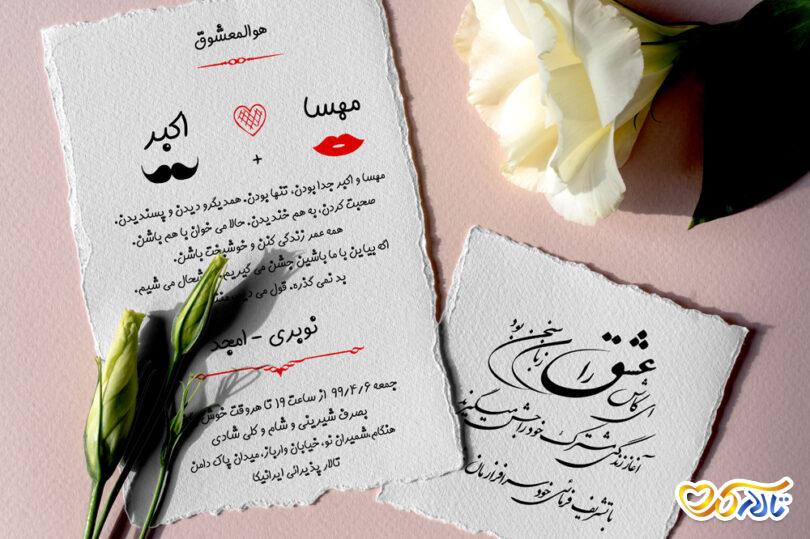 هوالمعشوق
مهسا
اکبر
+
مهسا و اکبر جدا بودن، تنها بودن. همدیگرو دیدن و پسندیدن.
صحبت کردن، به هم خندیدن. حالا می خوان با هم باشن.
همه عمر زندگی کنن و خوشبخت باشن.
اگه بیاین با ما باشین جشن می گیریم، خوشحال می شیم.
بد نمی گذره. قول می دیم
نوبری - امجد
جمعه ۹۹/۴/۶ از ساعت ۱۹ تا هروقت خوش
بصرف شیرینی و شام و کلی شادی
هنگام،شمیران نو، خیابان وارباز، میدان پاک دامن
تالار پذیرائی ایرانیکا
ای کاش عشق را زبان سخن بود
آغاز زندگی مشترک خود را جشن میگیریم
با تشریف فرمائی خود سرافرازمان
تالار کده